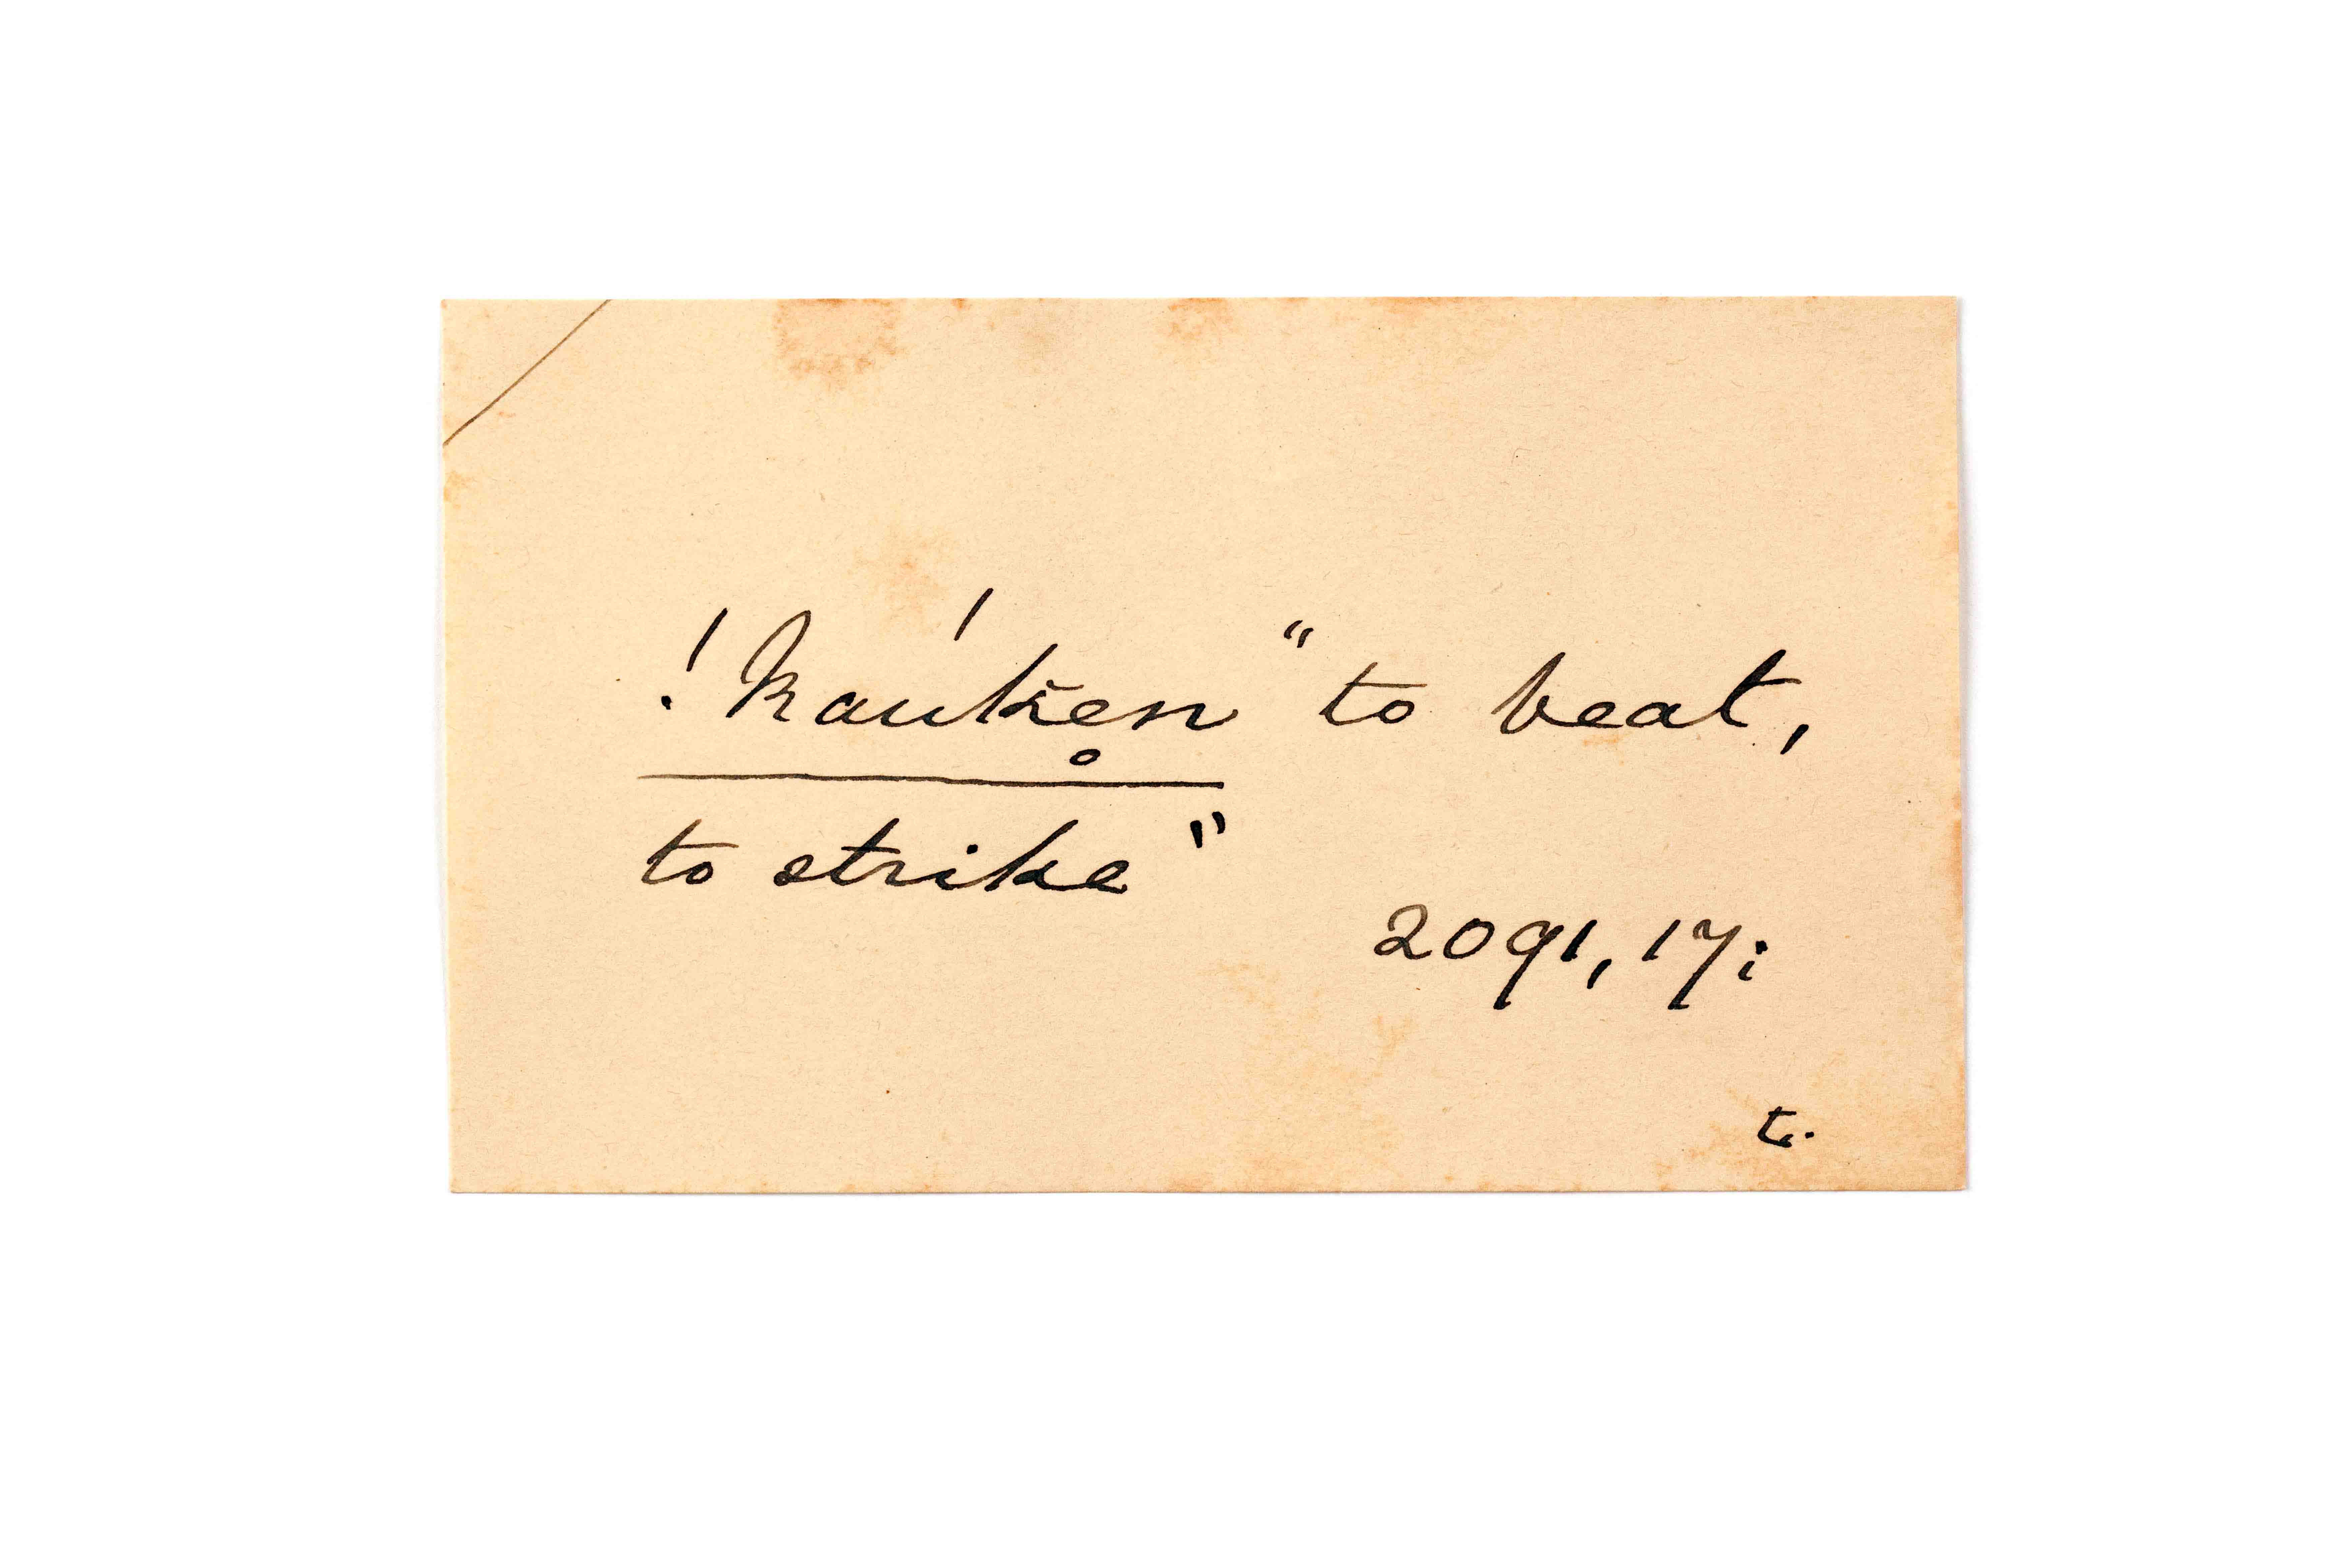 !kaúk̆e̥n "to beat,
to strike"
2091, 17;
t.